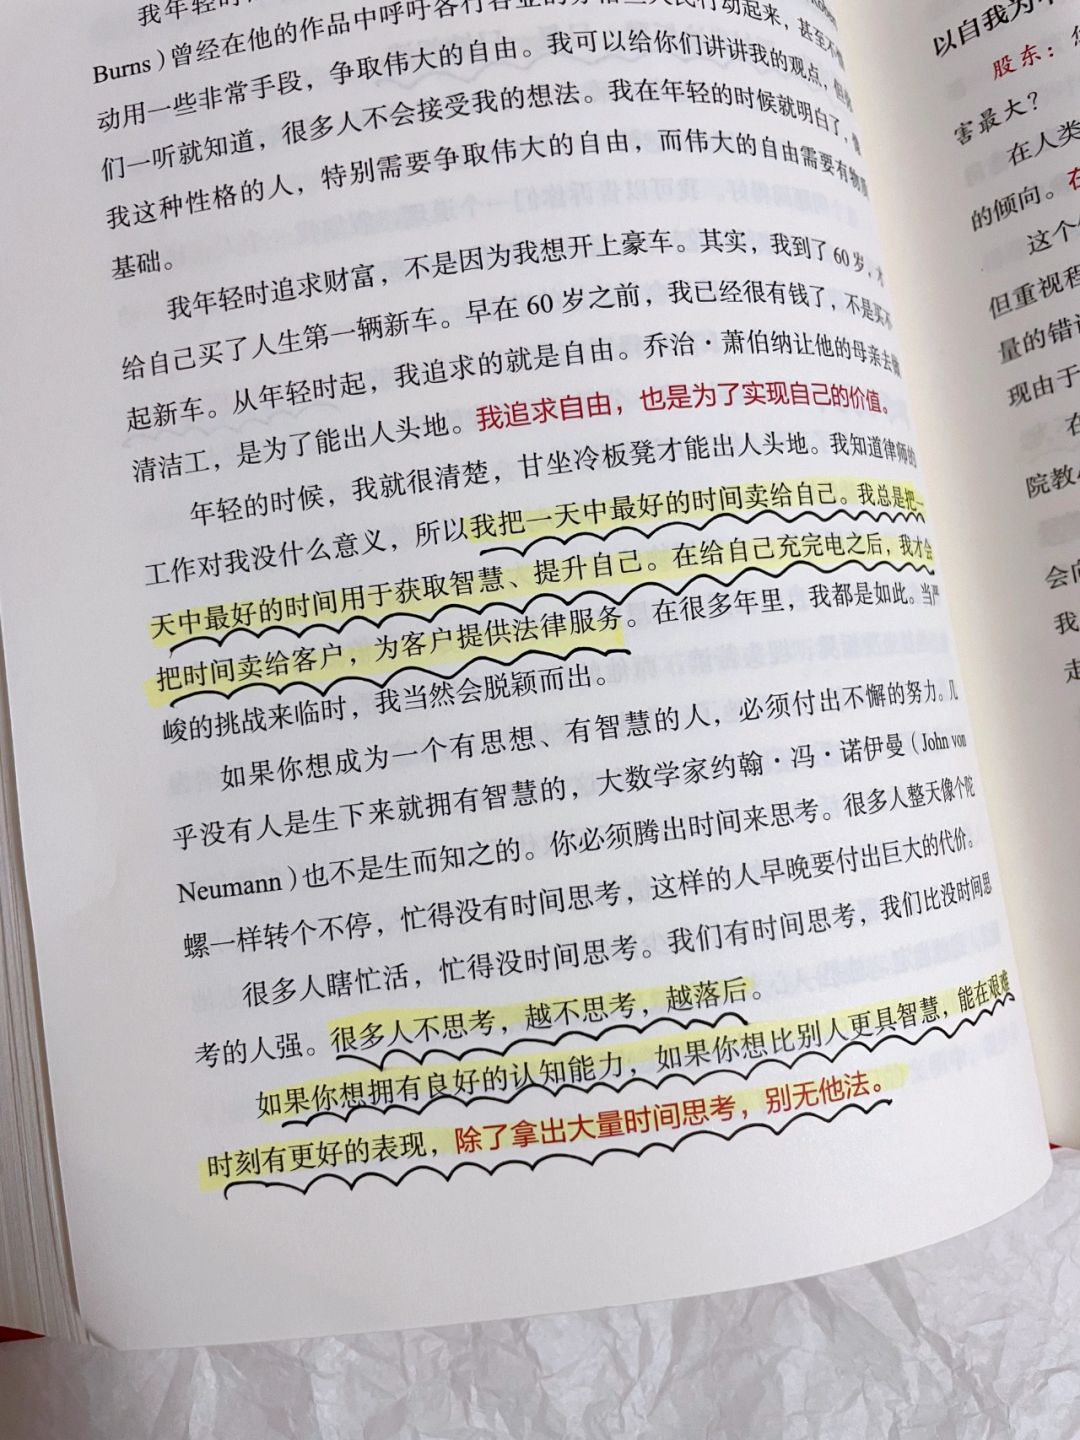 我年轻时
Burns）曾经在他的作品中呼吁各行各业的劳苦人民行动起来，甚至不惜
动用一些非常手段，争取伟大的自由。我可以给你们讲讲我的观点，但
们一听就知道，很多人不会接受我的想法。我在年轻的时候就明白了，像
我这种性格的人，特别需要争取伟大的自由，而伟大的自由需要有物质
基础。
我年轻时追求财富，不是因为我想开上豪车。其实，我到了 60 岁，才
给自己买了人生第一辆新车。早在 60 岁之前，我已经很有钱了，不是买不
起新车。从年轻时起，我追求的就是自由。乔治·萧伯纳让他的母亲去做
清洁工，是为了能出人头地。我追求自由，也是为了实现自己的价值。
年轻的时候，我就很清楚，甘坐冷板凳才能出人头地。我知道律师的
工作对我没什么意义，所以我把一天中最好的时间卖给自己。我总是把一
天中最好的时间用于获取智慧、提升自己。在给自己充完电之后，我才会
把时间卖给客户，为客户提供法律服务。在很多年里，我都是如此。当严
峻的挑战来临时，我当然会脱颖而出。
如果你想成为一个有思想、有智慧的人，必须付出不懈的努力。几
乎没有人是生下来就拥有智慧的，大数学家约翰·冯·诺伊曼（John von
Neumann）也不是生而知之的。你必须腾出时间来思考。很多人整天像个陀
螺一样转个不停，忙得没有时间思考，这样的人早晚要付出巨大的代价。
很多人瞎忙活，忙得没时间思考。我们有时间思考，我们比没时间思
考的人强。很多人不思考，越不思考，越落后。
如果你想拥有良好的认知能力，如果你想比别人更具智慧，能在艰难
时刻有更好的表现，除了拿出大量时间思考，别无他法。
以自我为
股东：
害最大？
在人类
的倾向。在
这个
但重视程
量的错
现由于
在
院教
会向
我
走